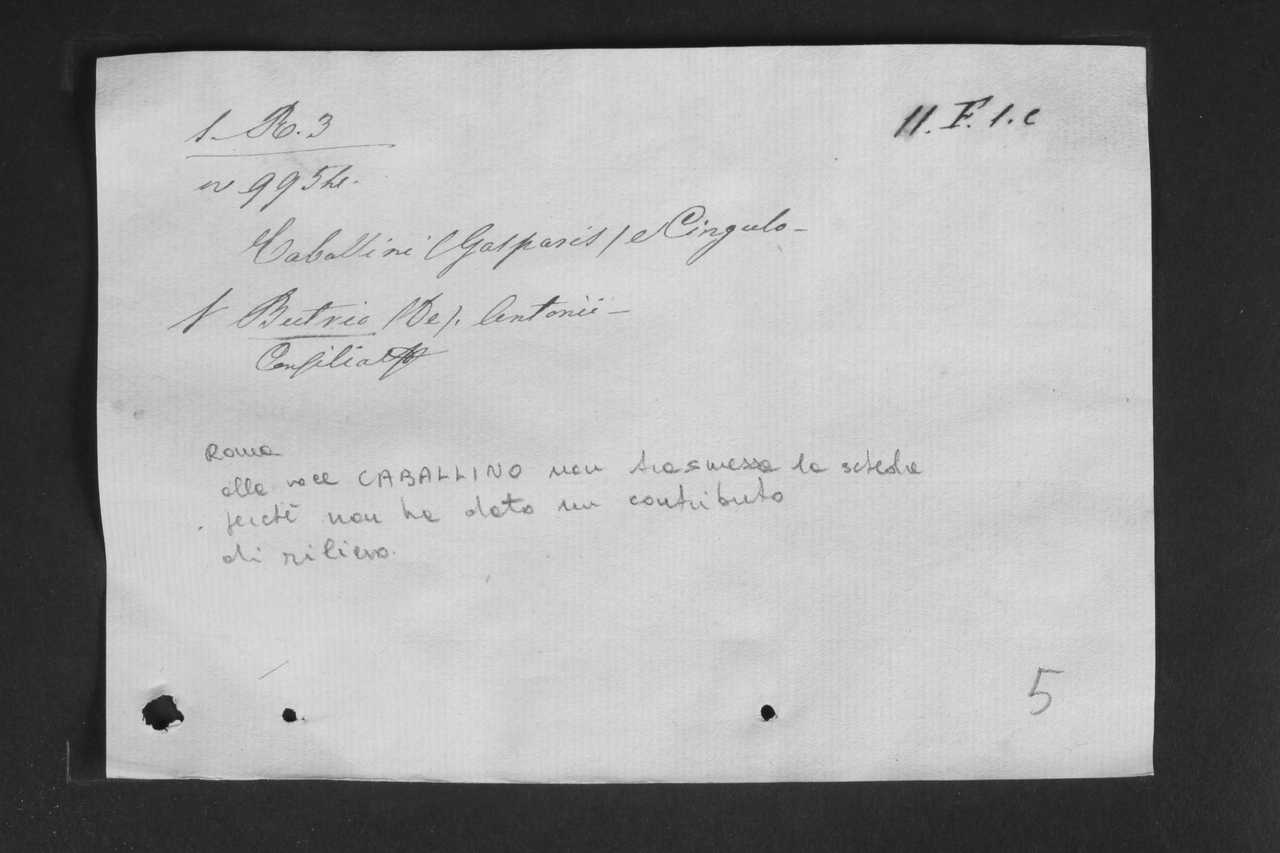 1. R. 3
11. F. 1. c
Caballini (Gasparis) e Cingulo -
V Butrio (De). Antonii -
Consilia
Roma
alla voce CABALLINO non trasmessa la scheda
perchè non ha dato un contributo
di rilievo.
5